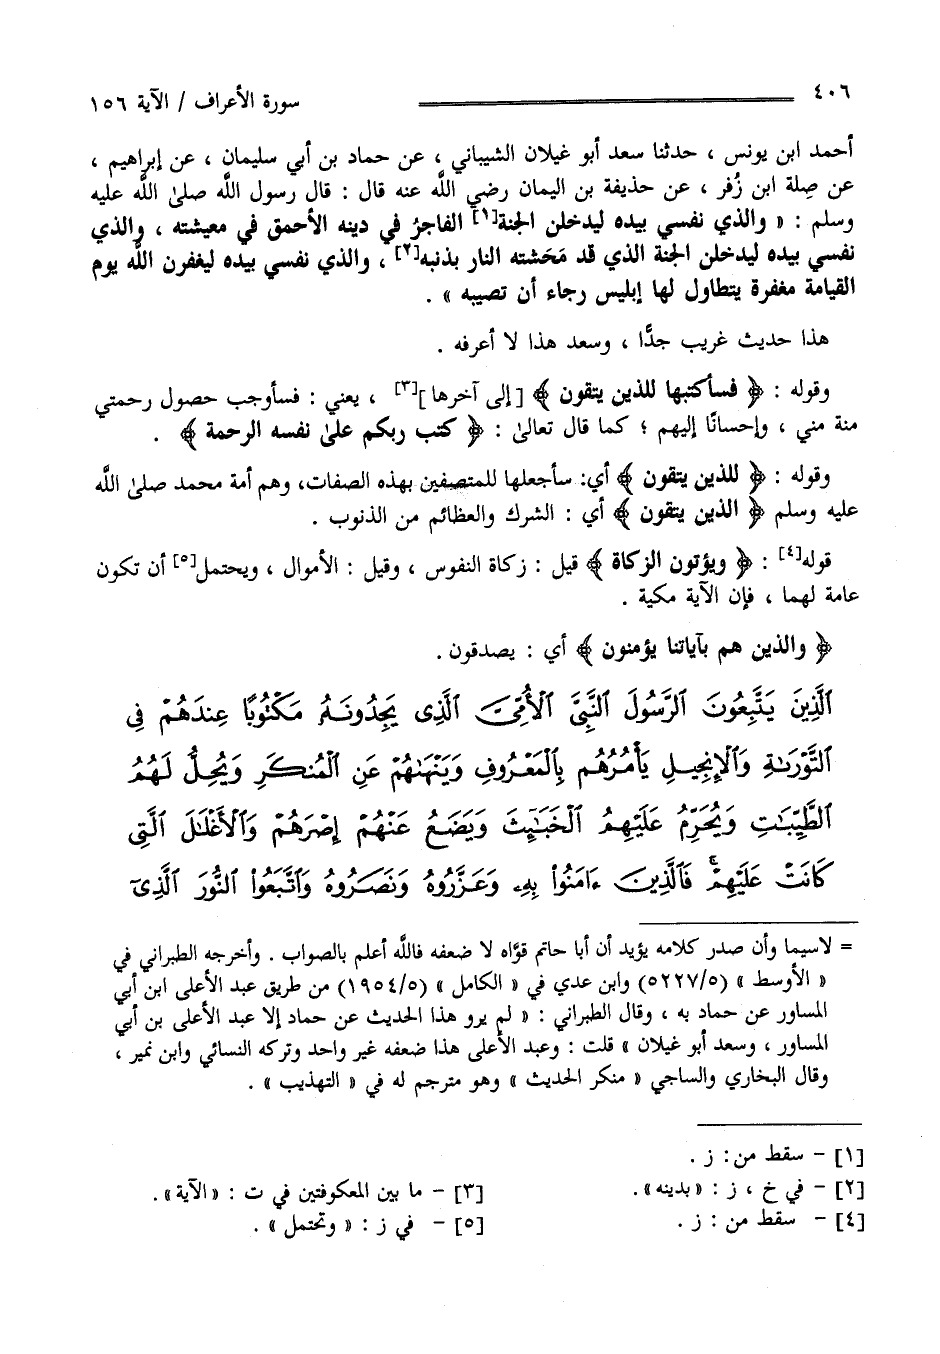 ٤٠٦ سورة الأعراف / الآية ١٥٦
أحمد ابن يونس ، حدثنا سعد أبو غيلان الشيباني ، عن حماد بن أبي سليمان ، عن إبراهيم ،
عن صِلة ابن زُفر ، عن حذيفة بن اليمان رضي اللَّه عنه قال : قال رسول اللَّه صلىٰ اللَّه عليه
وسلم : « والذي نفسي بيده ليدخلن الجنة[١] الفاجرُ في دينه الأحمق في معيشته ، والذي
نفسي بيده ليدخلن الجنة الذي قد مَحَشته النار بذنبه[٢] ، والذي نفسي بيده ليغفرن اللَّه يوم
القيامة مغفرة يتطاول لها إبليس رجاء أن تصيبه » .
هذا حديث غريب جدًّا ، وسعد هذا لا أعرفه .
وقوله : ﴿ فسأكتبها للذين يتقون ﴾ [إلى آخرها][٣] ، يعني : فسأوجب حصول رحمتي
منة مني ، وإحسانًا إليهم ؛ كما قال تعالىٰ : ﴿ كتب ربكم علىٰ نفسه الرحمة ﴾ .
وقوله : ﴿ للذين يتقون ﴾ أي: سأجعلها للمتصفين بهذه الصفات، وهم أمة محمد صلىٰ اللَّه
عليه وسلم ﴿ الذين يتقون ﴾ أي : الشرك والعظائم من الذنوب .
قوله[٤] : ﴿ ويؤتون الزكاة ﴾ قيل : زكاة النفوس ، وقيل : الأموال ، ويحتمل[٥] أن تكون
عامة لهما ، فإن الآية مكية .
﴿ والذين هم بآياتنا يؤمنون ﴾ أي : يصدقون .
ٱلَّذِينَ يَتَّبِعُونَ ٱلرَّسُولَ ٱلنَّبِىَّ ٱلْأُمِّىَّ ٱلَّذِى يَجِدُونَهُۥ مَكْتُوبًا عِندَهُمْ فِى
ٱلتَّوْرَىٰةِ وَٱلْإِنجِيلِ يَأْمُرُهُم بِٱلْمَعْرُوفِ وَيَنْهَىٰهُمْ عَنِ ٱلْمُنكَرِ وَيُحِلُّ لَهُمُ
ٱلطَّيِّبَٰتِ وَيُحَرِّمُ عَلَيْهِمُ ٱلْخَبَٰٓئِثَ وَيَضَعُ عَنْهُمْ إِصْرَهُمْ وَٱلْأَغْلَٰلَ ٱلَّتِى
كَانَتْ عَلَيْهِمْ ۚ فَٱلَّذِينَ ءَامَنُوا۟ بِهِۦ وَعَزَّرُوهُ وَنَصَرُوهُ وَٱتَّبَعُوا۟ ٱلنُّورَ ٱلَّذِىٓ
= لاسيما وأن صدر كلامه يؤيد أن أبا حاتم قوَّاه لا ضعفه فاللَّه أعلم بالصواب . وأخرجه الطبراني في
« الأوسط » (٥٢٢٧/٥) وابن عدي في « الكامل » (١٩٥٤/٥) من طريق عبد الأعلى ابن أبي
المساور عن حماد به ، وقال الطبراني : « لم يرو هذا الحديث عن حماد إلا عبد الأعلى بن أبي
المساور ، وسعد أبو غيلان » قلت : وعبد الأعلى هذا ضعفه غير واحد وتركه النسائي وابن نمير ،
وقال البخاري والساجي « منكر الحديث » وهو مترجم له في « التهذيب » .
[١] – سقط من: ز .
[٢] – في خ ، ز : «بدينه». [٣] – ما بين المعكوفتين في ت : «الآية» .
[٤] – سقط من : ز . [٥] – في ز : « وتحتمل » .